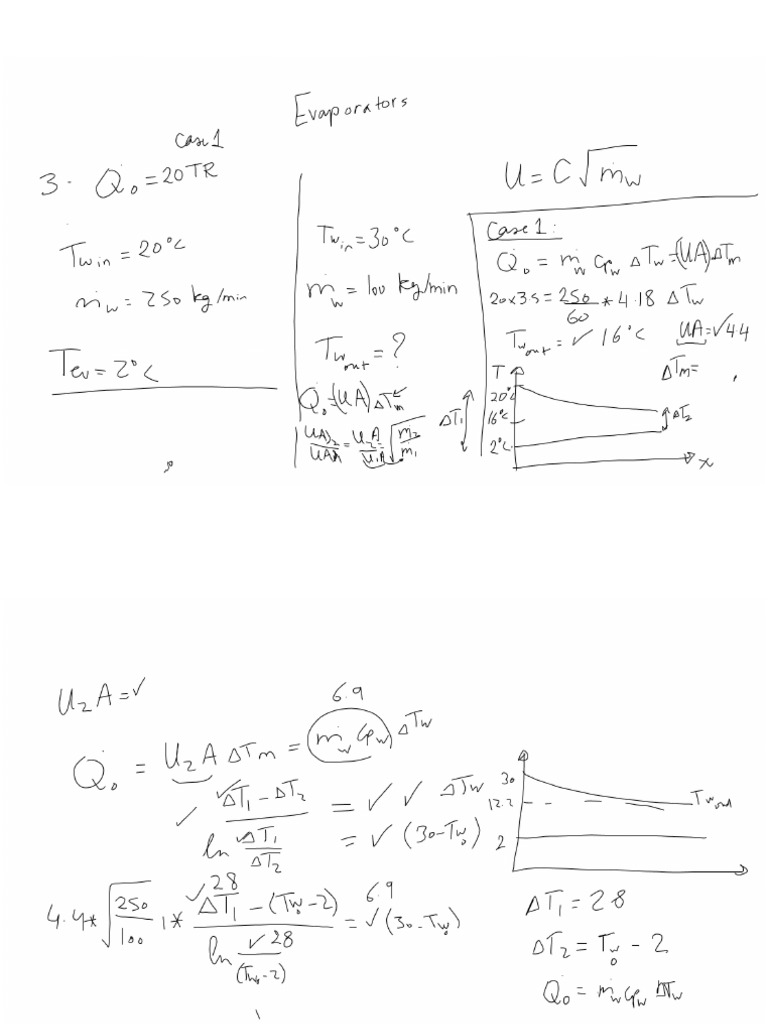 Evaporators
Case 1
3. Q̇₀ = 20TR
Tw in = 20°C
ṁw = 250 kg/min
Tev = 2°C
Tw in = 30°C
ṁw = 100 kg/min
Tw out = ?
Q̇₀ = (UA)₂ΔTm
(UA)₂/(UA)₁ = U₂A/U₁A = √(ṁ₂/ṁ₁)
U = C√ṁw
Case 1:
Q̇₀ = ṁw Cpw ΔTw = (UA)ΔTm
20x3.5 = 250/60 * 4.18 ΔTw
Tw out = ✓ 16°C UA = ✓ 4.4
ΔTm =
T
20°C
16°C
2°C
ΔT₁
ΔT₂
x
U₂A = ✓
6.9
Q̇₀ = U₂A ΔTm = ṁw Cpw ΔTw
✓ (ΔT₁ - ΔT₂)/(ln ΔT₁/ΔT₂) = ✓ ✓ ΔTw
= ✓ (30-Tw₀)
4.4 * √(250/100) * (✓ 28 ΔT₁ - (Tw₀-2))/(ln ✓ 28/(Tw₀-2)) = 6.9 ✓ (30-Tw₀)
30
12.2
2
Tw out
ΔT₁ = 28
ΔT₂ = Tw₀ - 2
Q̇₀ = ṁw Cpw ΔTw